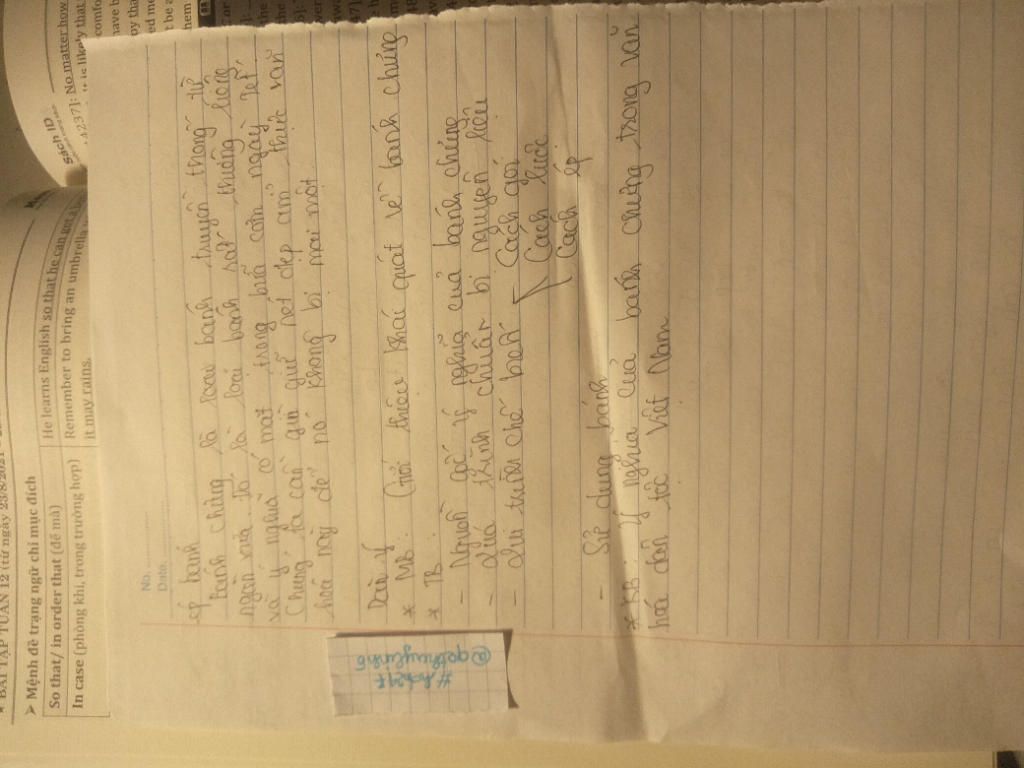 No.
Date
ép bánh
Bánh chưng là loại bánh truyền thống từ
ngàn xưa ta là loại bánh rất thiêng liêng
và ý nghĩa có mặt trong biết ngày tết.
Chúng ta cần giữ nét đẹp ẩm thực văn
hoá này để nó không bị mai một
Dàn ý
* MB: Giới thiệu khái quát về bánh chưng
* TB:
- Nguồn gốc ý nghĩa của bánh chưng
- Quá trình chuẩn bị nguyên liệu
- Quá trình chế biến Cách gói
Cách luộc
Cách ép
- Sử dụng bánh
* KB: ý nghĩa của bánh chưng trong văn
hoá dân tộc Việt Nam
#hoh247
BÀI TẬP TUẦN 12 (từ ngày 23/8/2021 -
➤ Mệnh đề trạng ngữ chỉ mục đích
So that/ in order that (để mà) He learns English so that he can get a
In case (phòng khi, trong trường hợp) Remember to bring an umbrella
it may rains.
Sách ID
4237]: No matter how
It is likely that